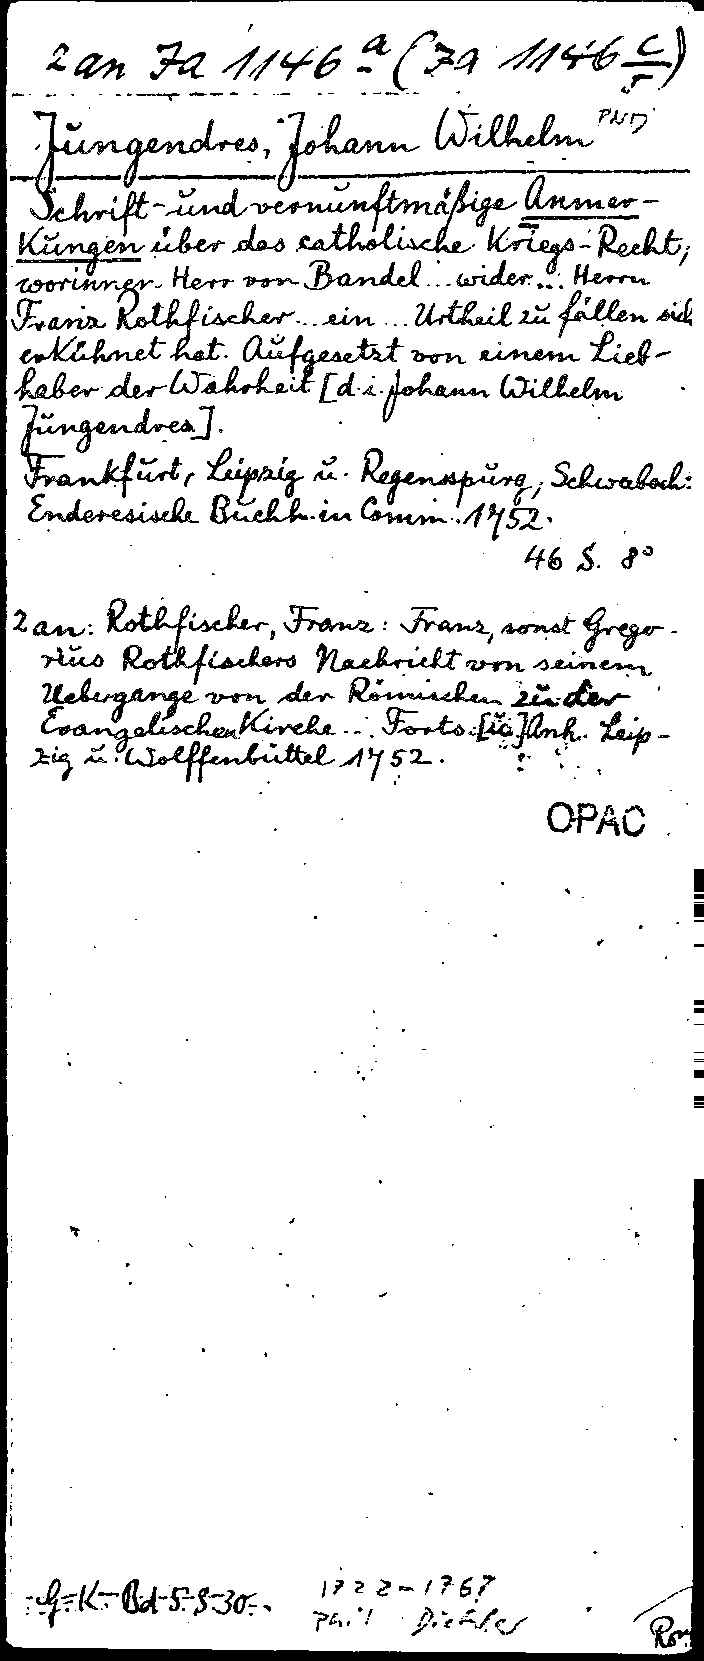 2 an 7a 1146 a (7a 1146 c)
Jungendres, Johann Wilhelm PND
Schrift- und vernunftmäßige Anmer-
kungen über das catholische Kriegs-Recht,
worinnen Herr von Bandel ... wider ... Herrn
Franz Rothfischer ... ein ... Urtheil zu fällen sich
erkühnet hat. Aufgesetzt von einem Lieb-
haber der Wahrheit [d. i. Johann Wilhelm
Jungendres].
Frankfurt, Leipzig u. Regenspurg, Schwabach:
Enderesische Buchh. in Comm. 1752.
46 S. 8°
2 an: Rothfischer, Franz: Franz, sonst Grego-
rius Rothfischers Nachricht von seinem
Uebergange von der Römischen zu der
Evangelischen Kirche ... Forts. [u.] Anh. Leip-
zig u. Wolffenbüttel 1752.
OPAC
G-K-Bd-5-S-30-.
1722-1767
Phil Dichter